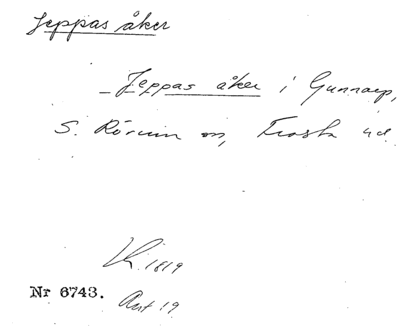 Jeppas åker
– Jeppas åker i Gunnarp,
S. Rörum sn, Frosta hd.
1819
Nr 6743.
19